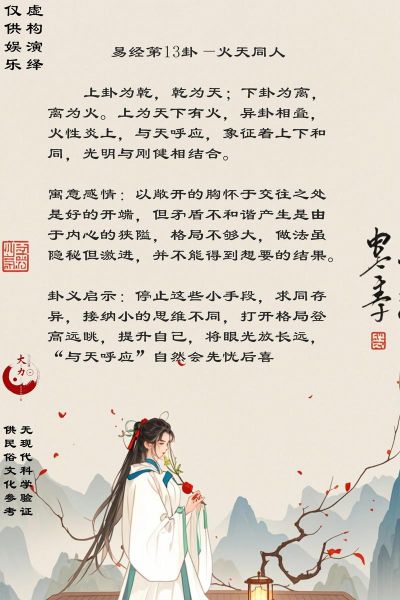 虚构演绎
仅供娱乐
易经第13卦－火天同人
上卦为乾，乾为天；下卦为离，
离为火。上为天下有火，异卦相叠，
火性炎上，与天呼应，象征着上下和
同，光明与刚健相结合。
寓意感情：以敞开的胸怀于交往之处
是好的开端，但矛盾不和谐产生是由
于内心的狭隘，格局不够大，做法虽
隐秘但激进，并不能得到想要的结果。
卦义启示：停止这些小手段，求同存
异，接纳小的思维不同，打开格局登
高远眺，提升自己，将眼光放长远，
“与天呼应”自然会先忧后喜
大力
无现代科学验证
供民俗文化参考